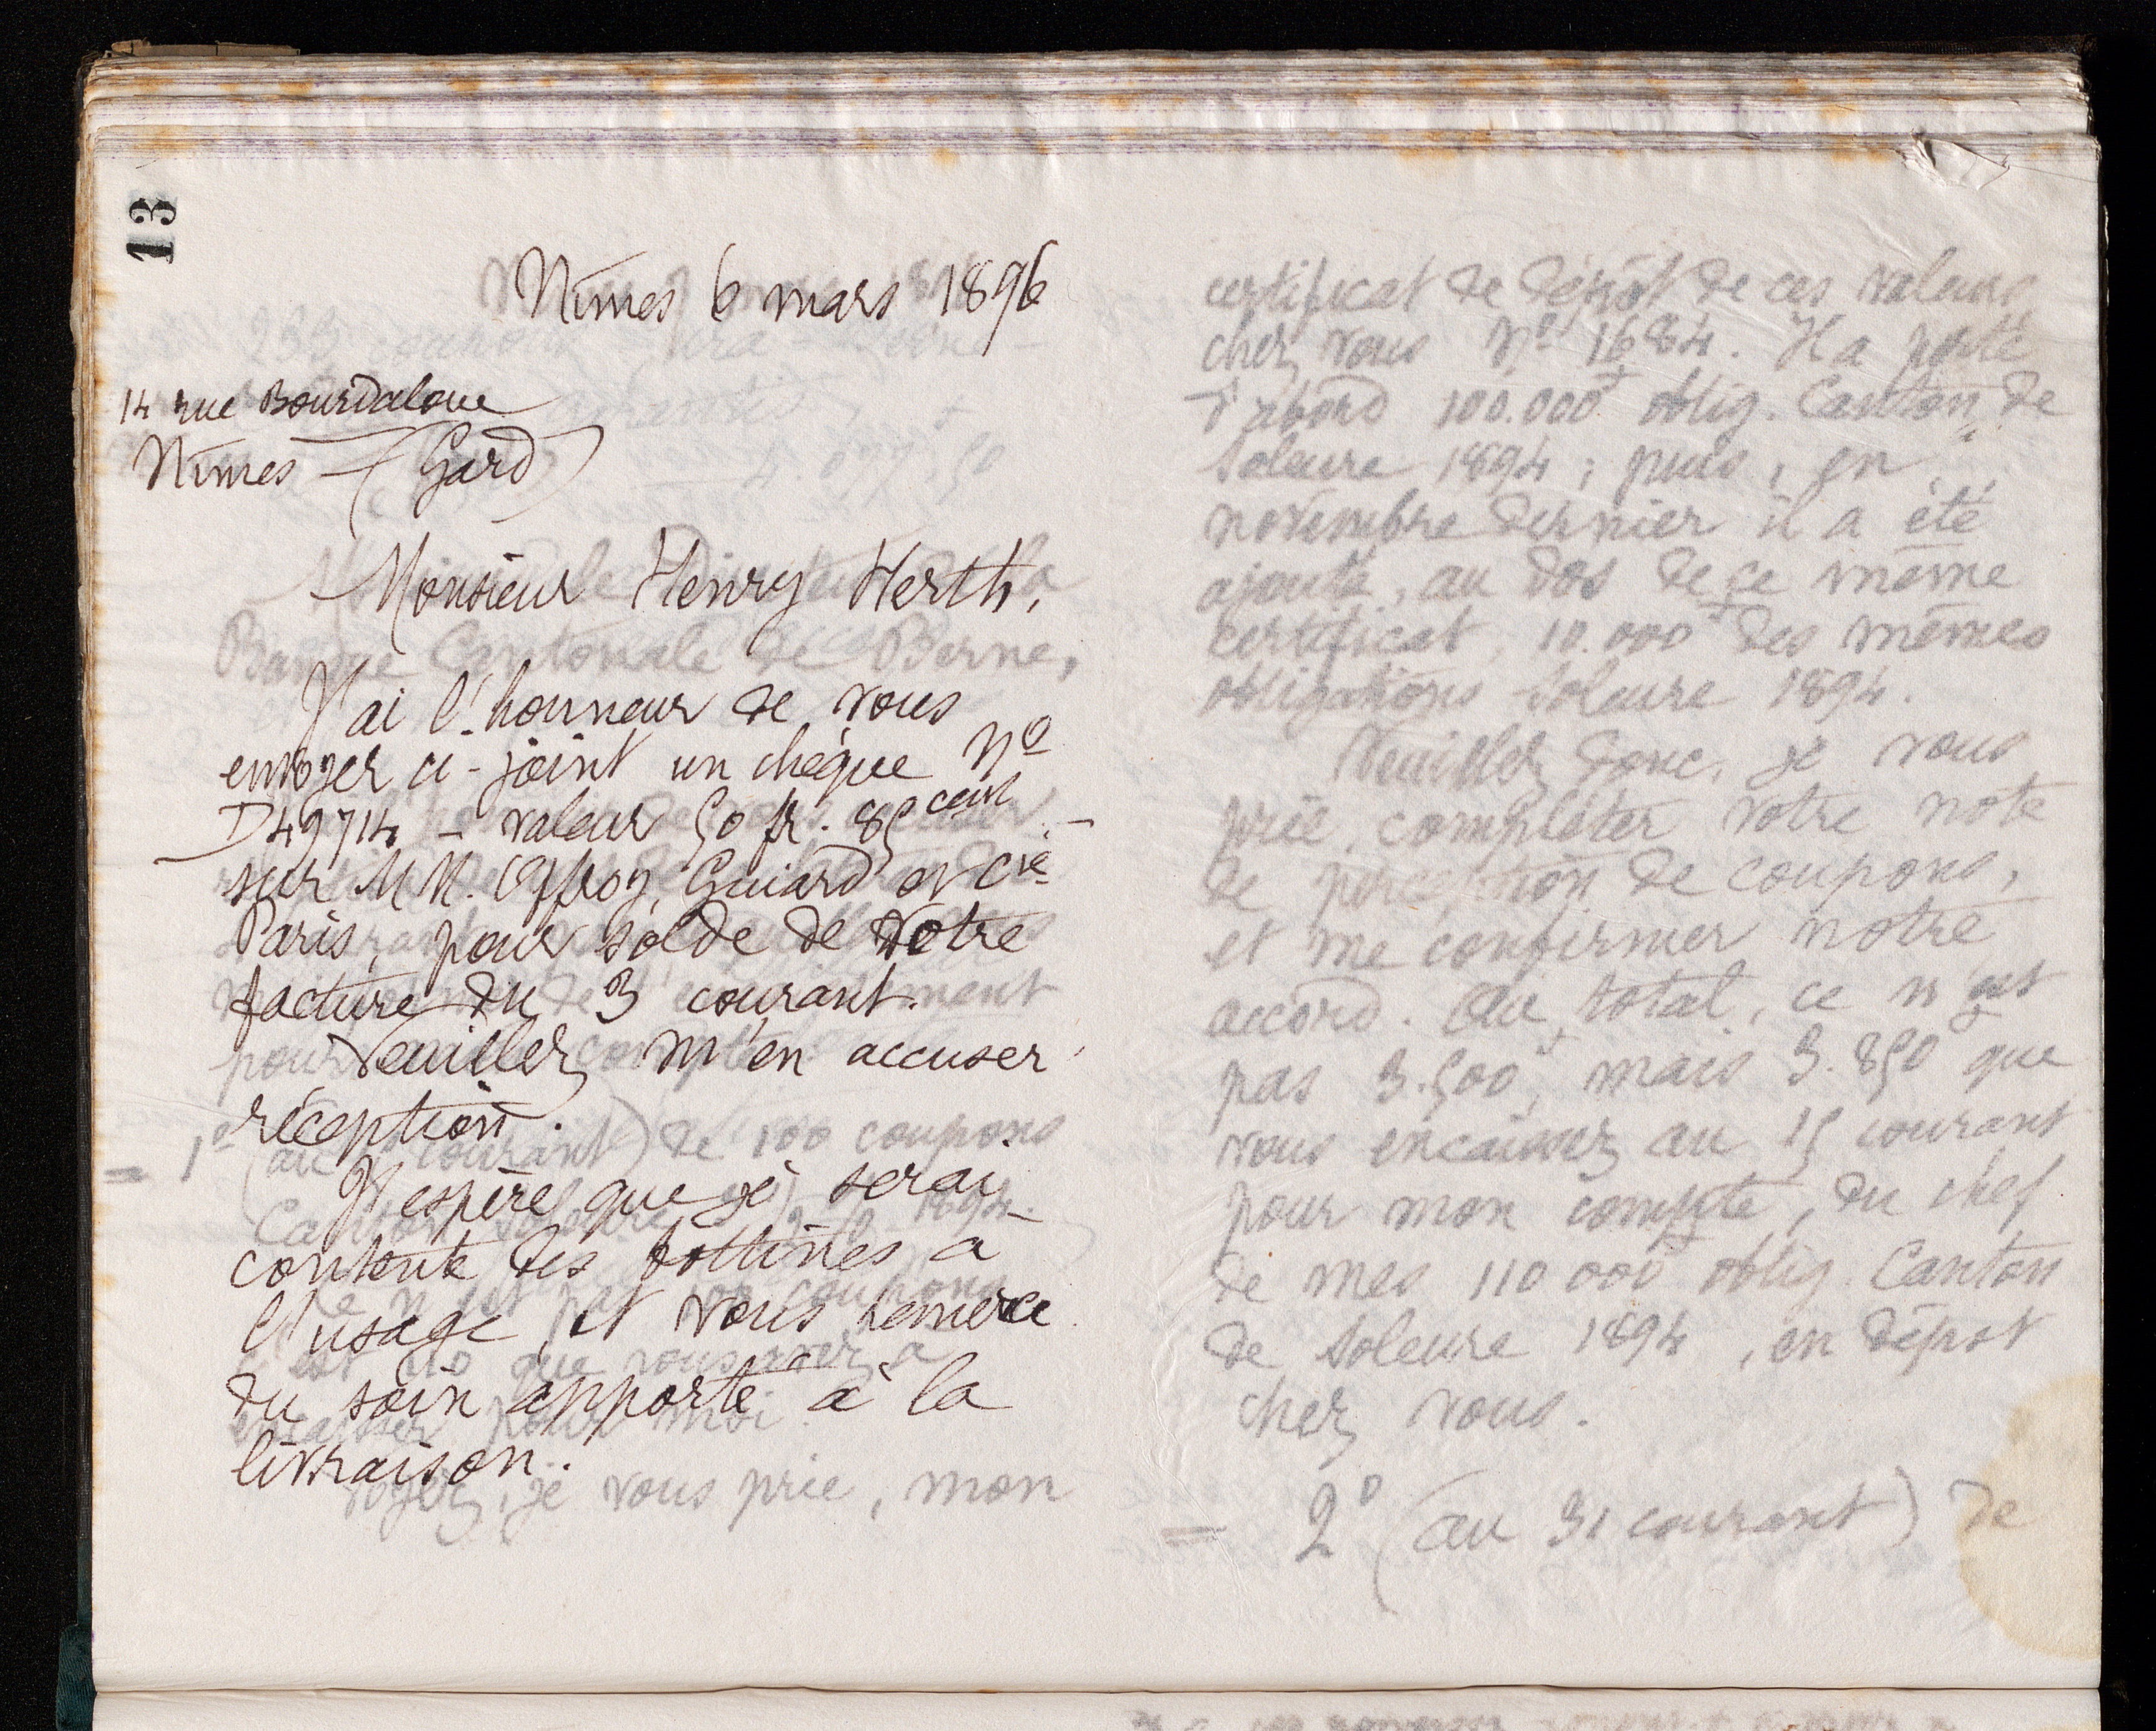 13
Nîmes 6 mars 1896
14 rue Bourdaloue
Nîmes – (Gard)
Monsieur Henry Herth,
J'ai l'honneur de vous
envoyer ci-joint un chèque Nº
D 49714 – valeur 50 fr. 85 cent –
sur MM. Offroy, Guiard et Cie
Paris, pour solde de votre
facture du 3 courant.
Veuillez m'en accuser
réception.
J'espère que je serai
contente des bottines à
l'usage, et vous remercie
du soin apporté à la
livraison.
Banque Cantonale de Berne,
1º (au courant) de 100 coupons
Canton Soleure 1894.
ce n'est pas 100 coupons
c'est 110 que vous avez à
encaisser pour moi.
Voyez, je vous prie, mon
certificat de dépôt de ces valeurs
chez vous Nº 1684. Il a porté
d'abord 100.000 oblig. Canton de
Soleure 1894 ; puis, en
novembre dernier il a été
ajouté, au dos de ce même
certificat, 10.000 des mêmes
obligations Soleure 1894.
Veuillez donc, je vous
prie, compléter votre note
de perception de coupons,
et me confirmer notre
accord. Au total, ce n'est
pas 3.500, mais 3.850 que
vous encaissez au 15 courant
pour mon compte, du chef
de mes 110 000 oblig. Canton
de Soleure 1894, en dépôt
chez vous.
2º (au 31 courant) de